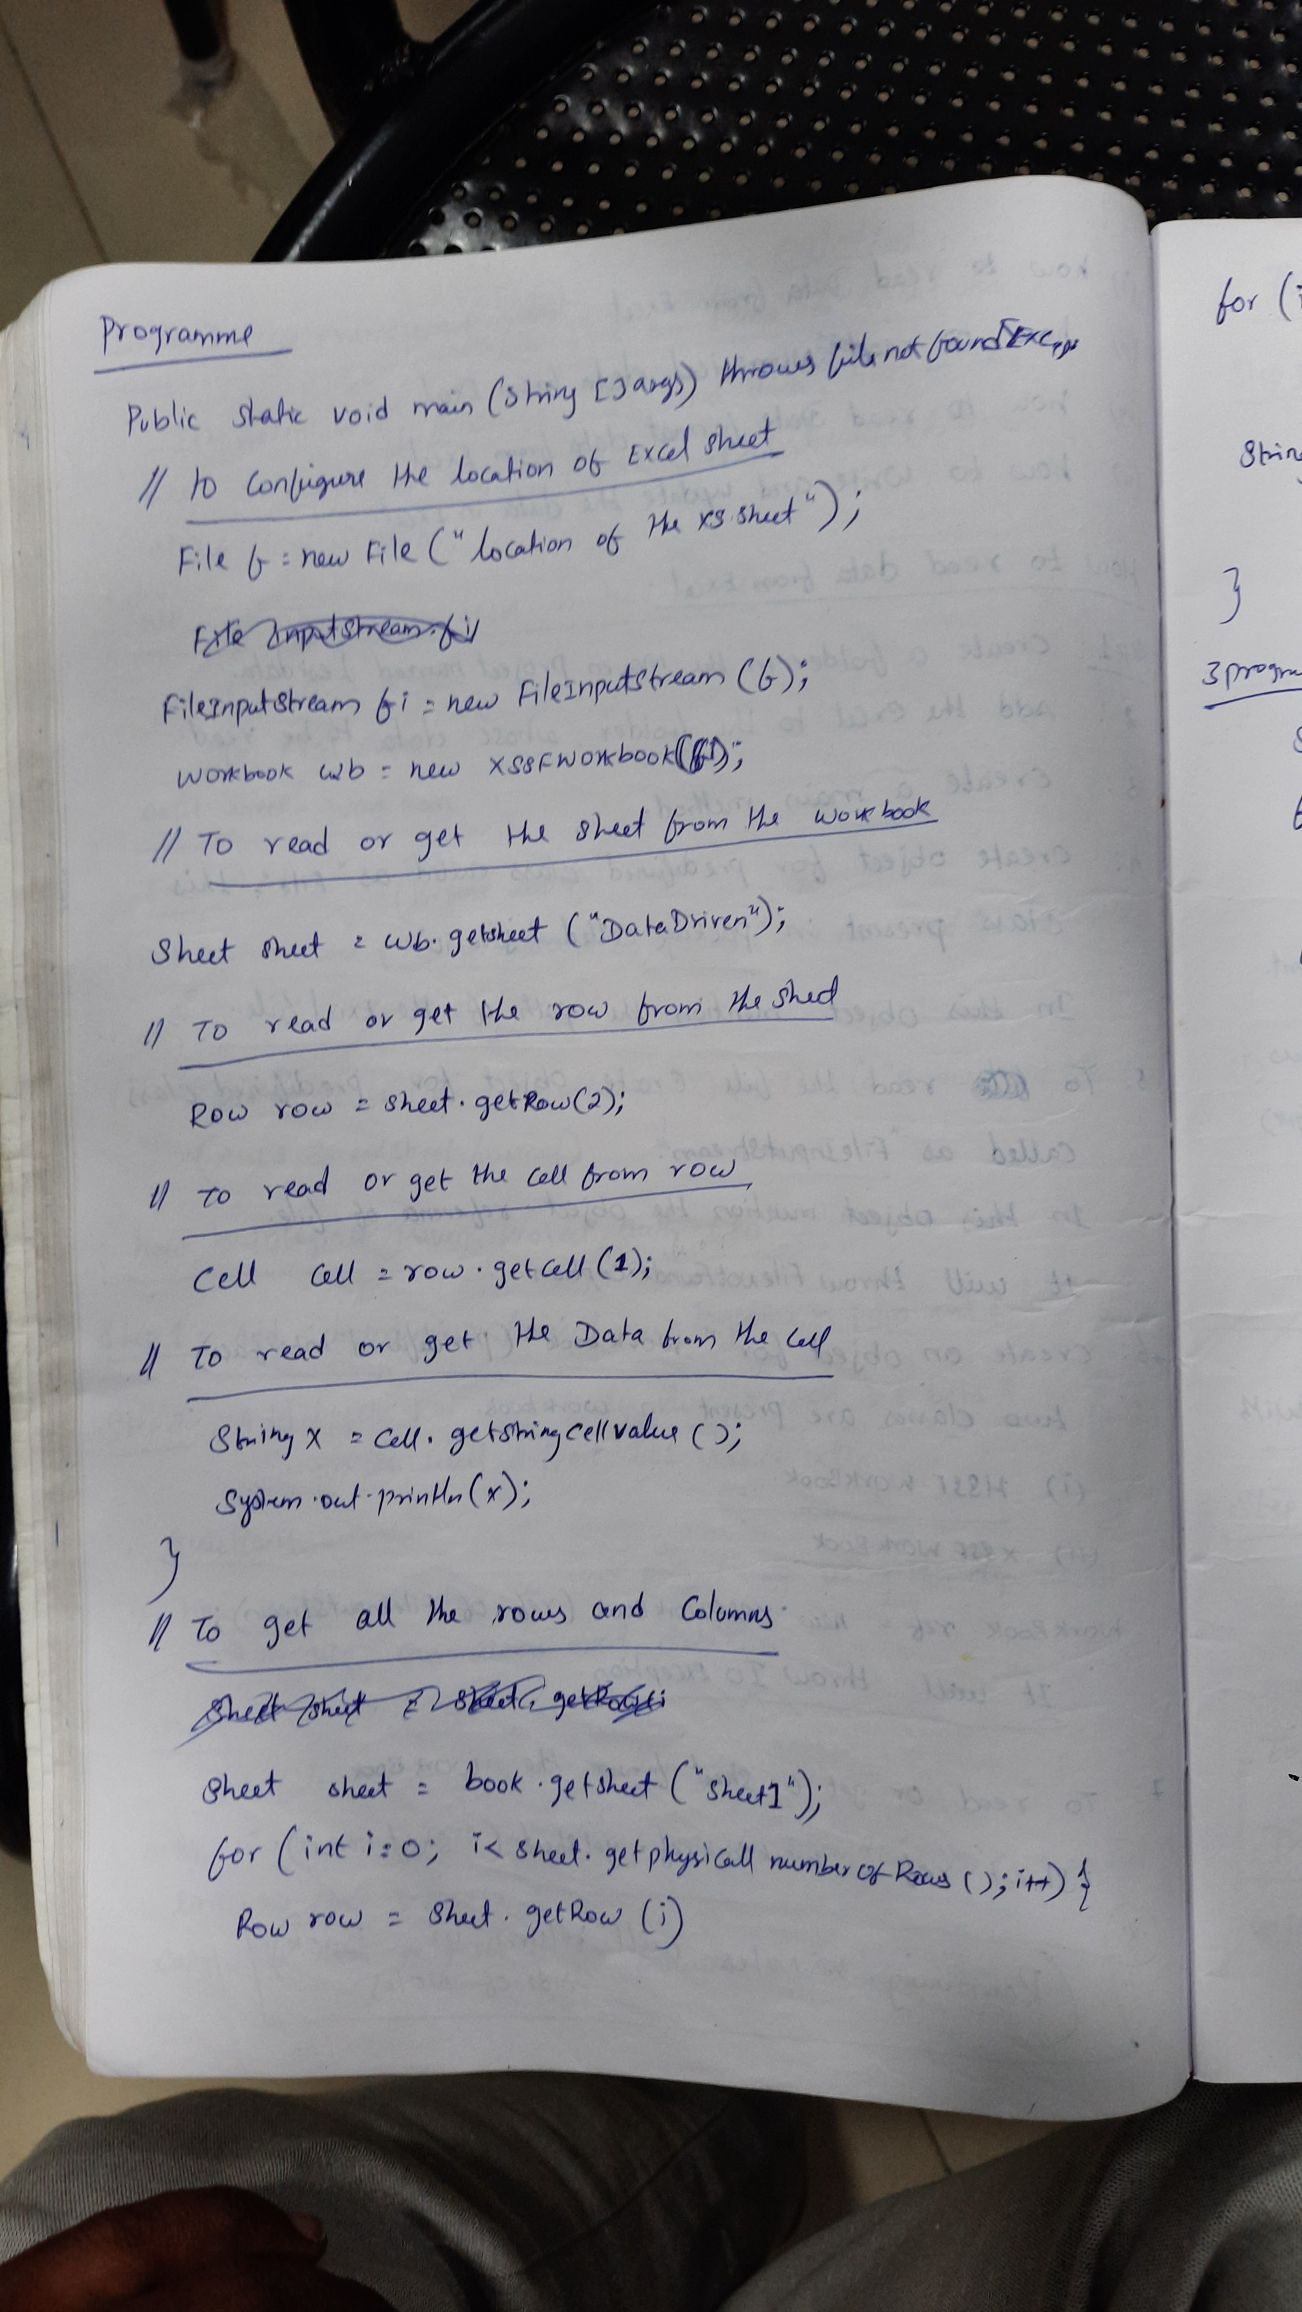 Programme
Public static void main (String [] args) throws file not found Excep
// To configure the location of Excel sheet
File f = new File ("location of the XS sheet");
FileInputStream fi = new FileInputStream (f);
Workbook wb = new XSSFWorkbook(fi);
// To read or get the sheet from the workbook
Sheet sheet = wb.getsheet ("DataDriven");
// To read or get the row from the sheet
Row row = sheet.getRow(2);
// To read or get the cell from row
Cell cell = row.getcell (1);
// To read or get the Data from the cell
String x = cell.getstringcellvalue ();
System.out.println(x);
}
// To get all the rows and Columns
Sheet sheet = book.getsheet ("sheet1");
for (int i=0; i< sheet.getphysicall numberofRows (); i++) {
Row row = sheet.getRow (i)
for (i
String
}
3 progra